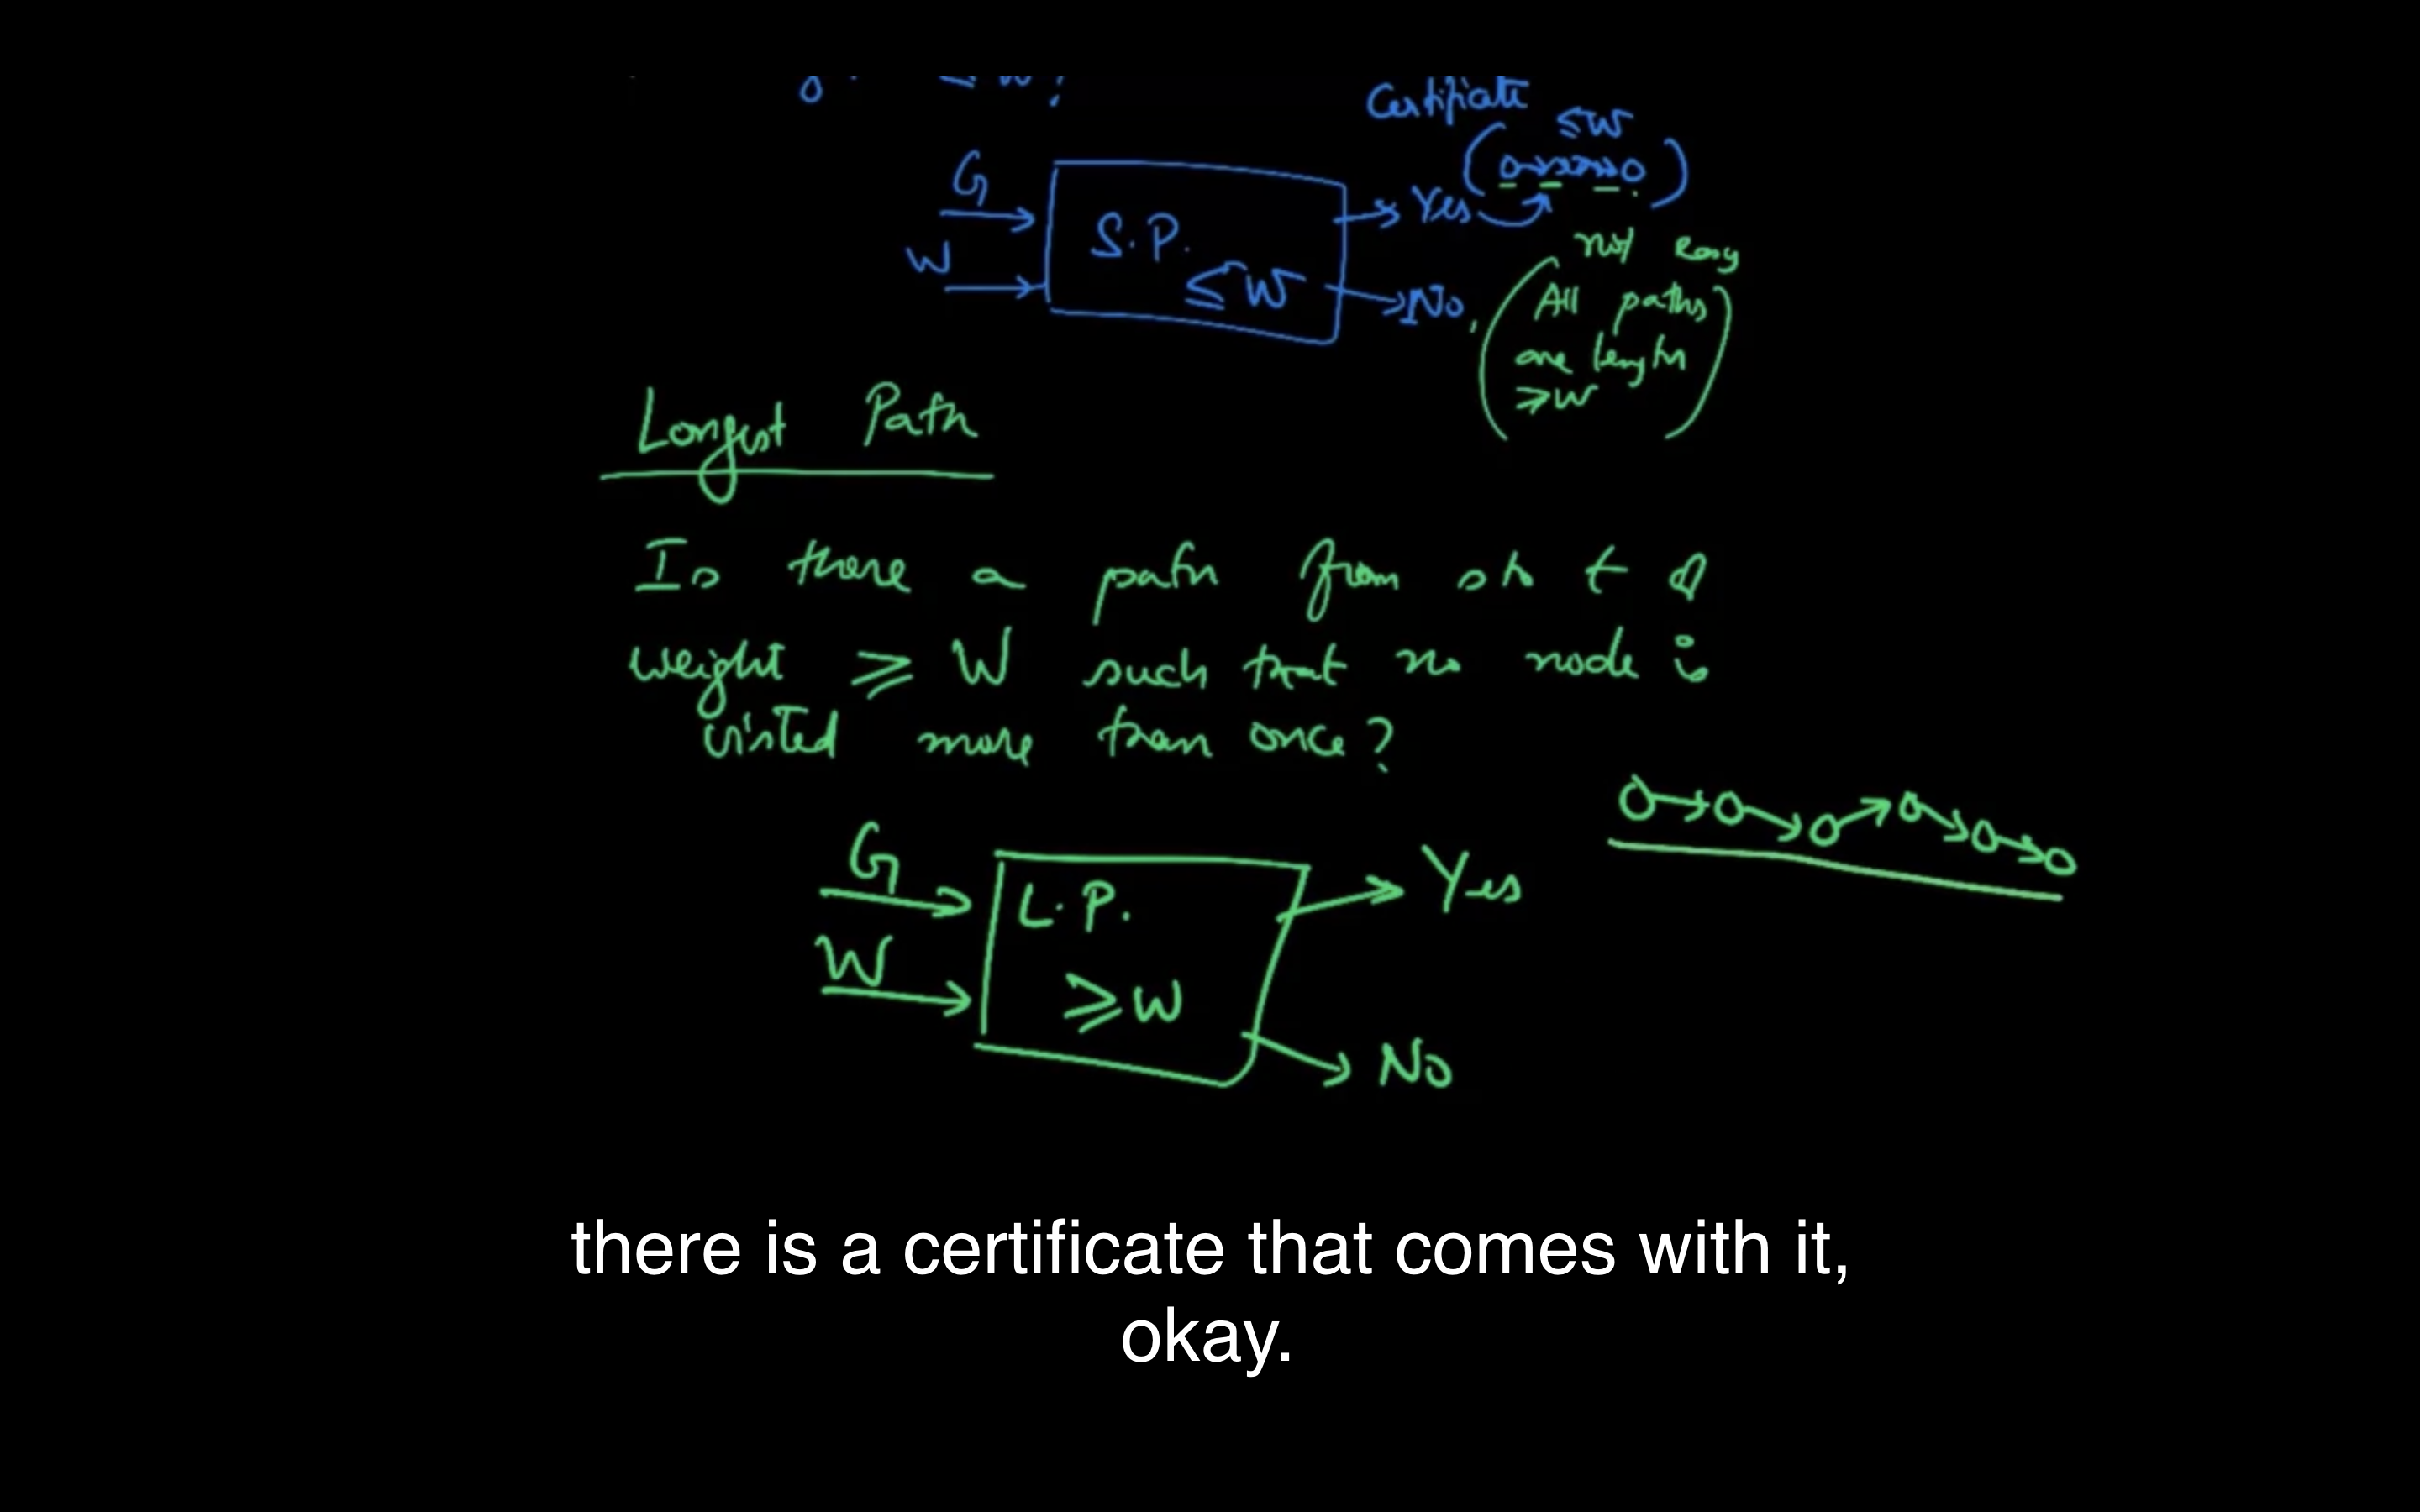 ≤ W?
Certificate
≤ W
G
W
S.P.
≤ W
Yes
No,
not easy
All paths
are length
≥ W
Longest Path
Is there a path from s to t of
weight ≥ W such that no node is
visited more than once?
G
W
L.P.
≥ W
Yes
No
there is a certificate that comes with it,
okay.